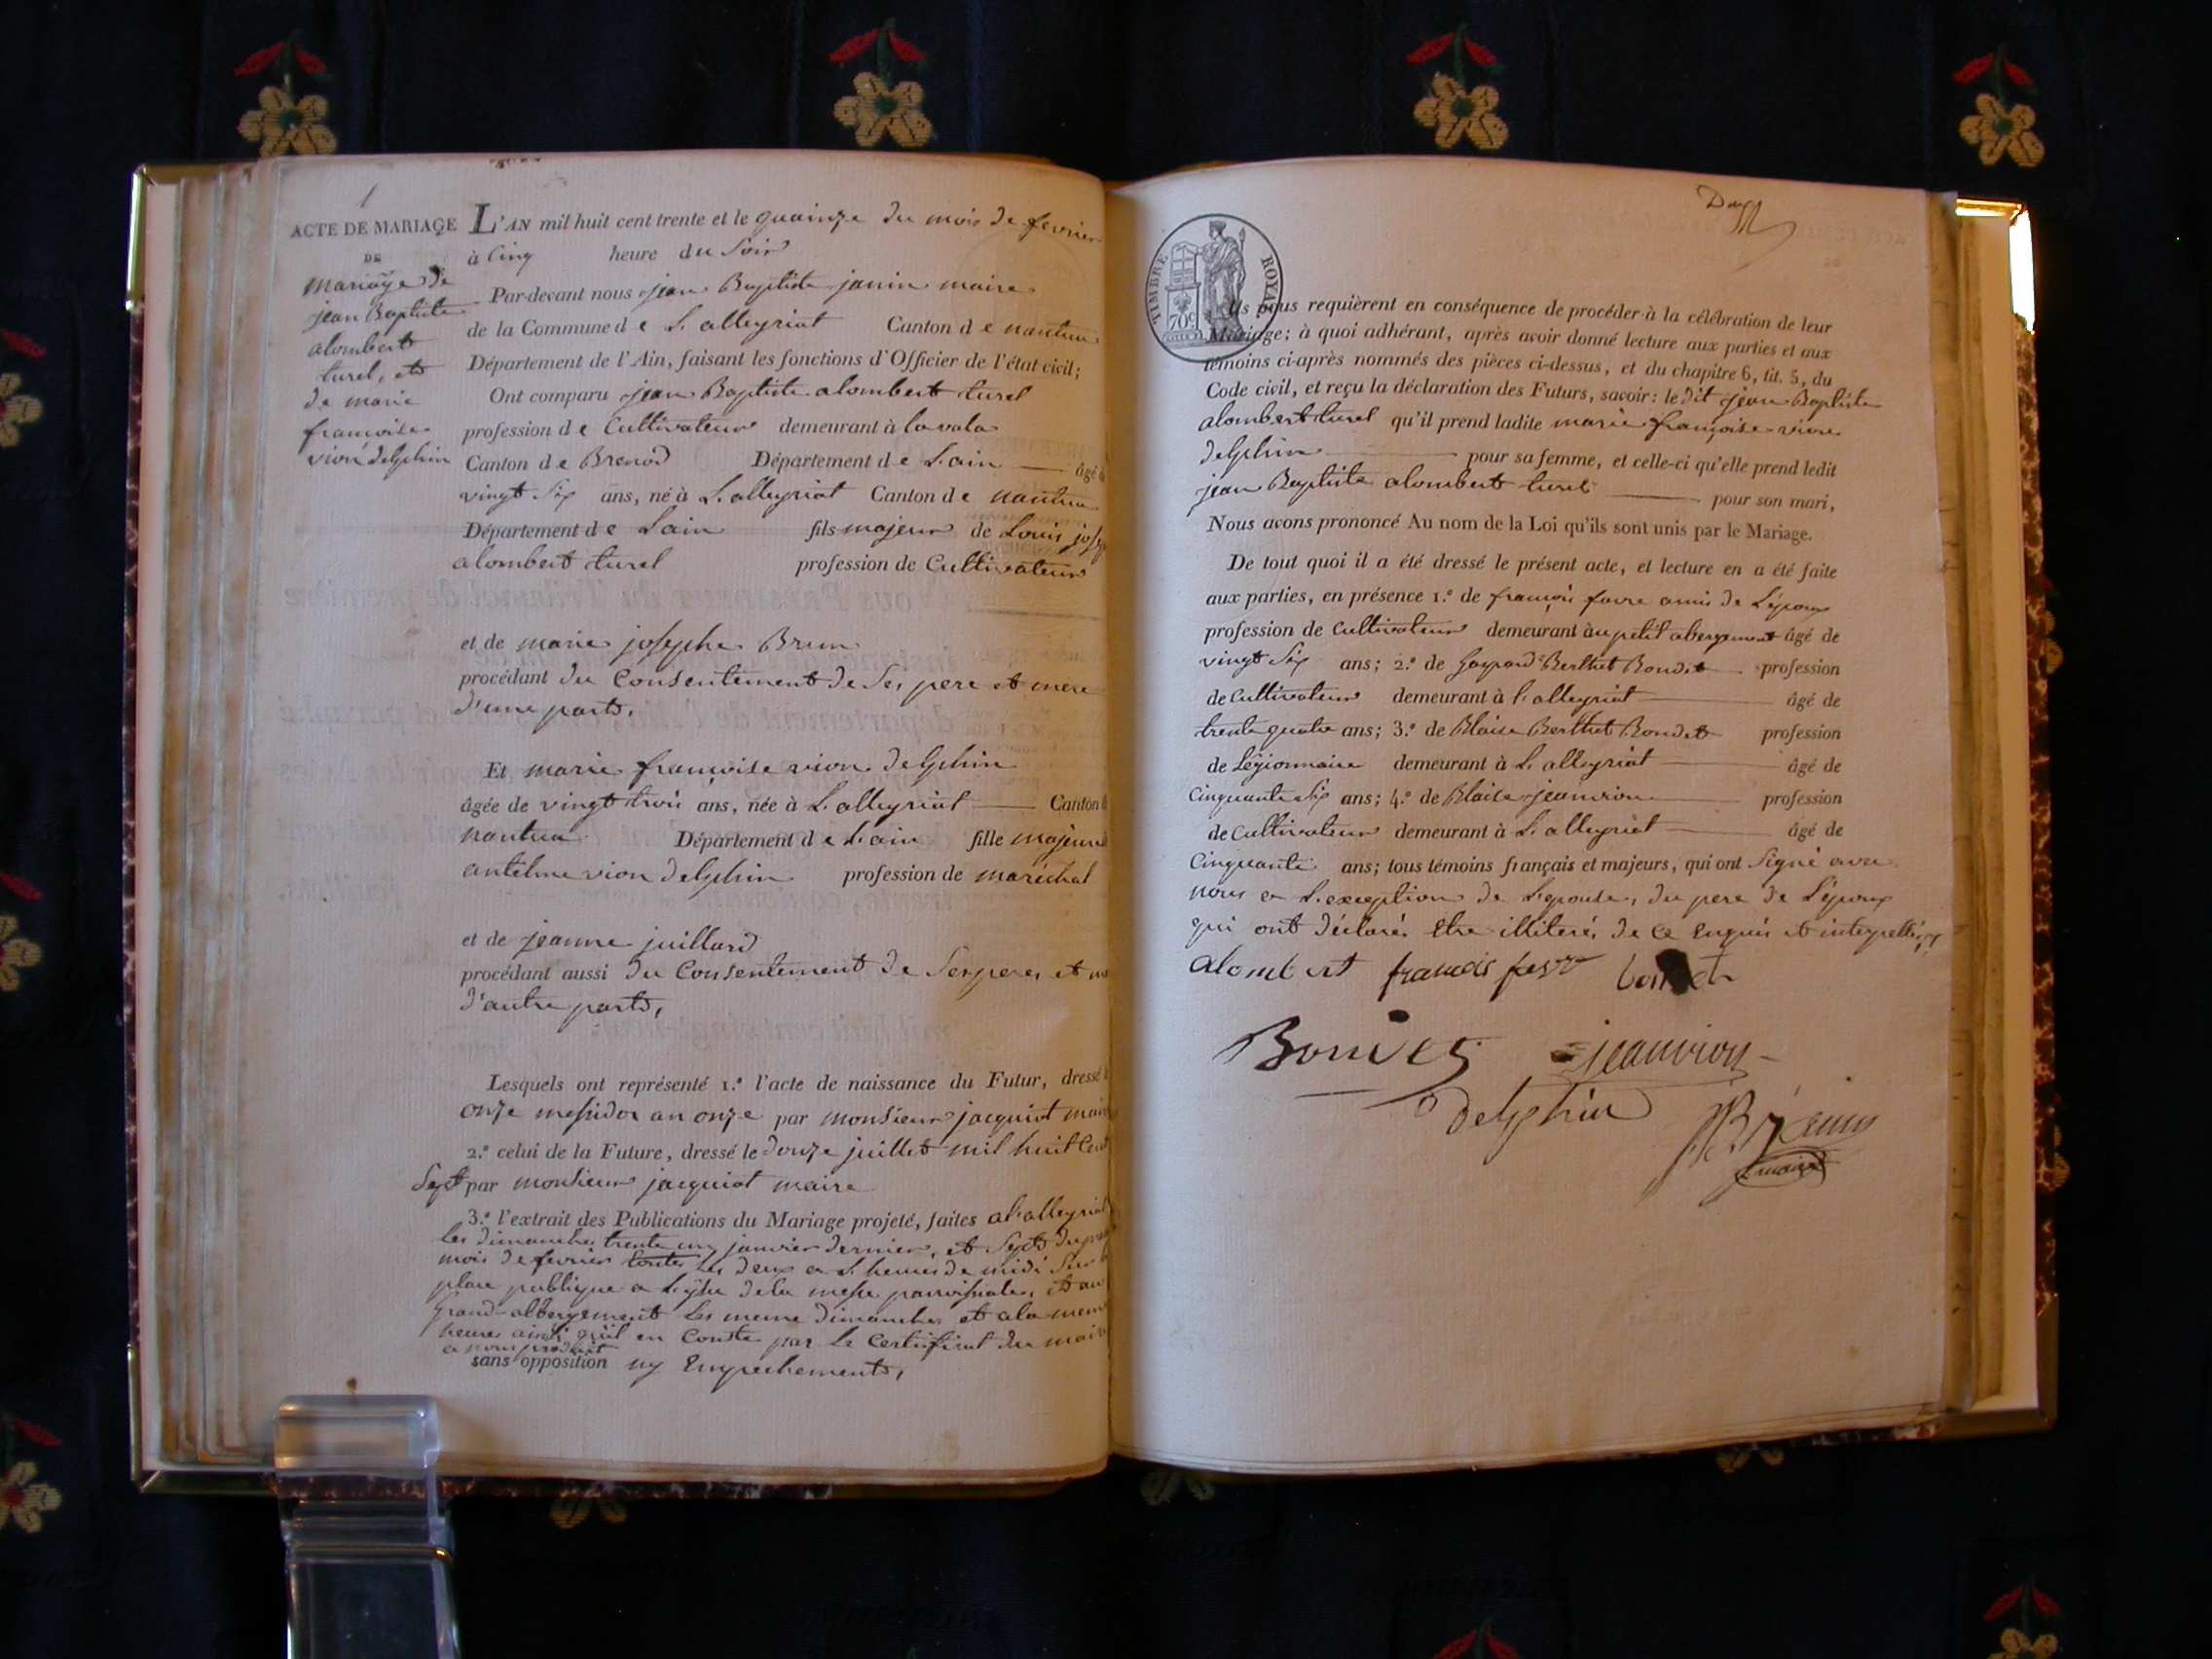 1
ACTE DE MARIAGE
DE
mariage de
jean Baptiste
alombert
turel, et
de marie
francoise
vion delphin
L'AN mil huit cent trente et le quainze du mois de fevrier
à Cinq heure du Soir
Par-devant nous jean Baptiste janin maire
de la Commune de L. alleyriat Canton de nantua
Département de l'Ain, faisant les fonctions d'Officier de l'état civil;
Ont comparu jean Baptiste alombert turel
profession de Cultivateur demeurant à lavala
Canton de Brenod Département de L'ain âgé
vingt Six ans, né à L. alleyriat Canton de nantua
Département de Lain fils majeur de Louis
alombert turel profession de Cultivateur
et de marie josephe Brun
procédant du Consentement de Ses pere et mere
d'une part,
Et marie françoise vion delphin
âgée de vingt trois ans, née à L. alleyriat Canton
nantua Département de L'ain fille majeure
antelme vion delphin profession de maréchal
et de jeanne juillard
procédant aussi du Consentement de Ses peres et
d'autre part,
Lesquels ont représenté 1.º l'acte de naissance du Futur, dressé
onze messidor an onze par monsieur jacquiot maire
2.º celui de la Future, dressé le douze juillet mil huit Cent
Sept par monsieur jacquiot maire
3.º l'extrait des Publications du Mariage projeté, faites a L'alleyriat
les dimanches trente un janvier dernier, et Sept du
mois de fevrier toutes les deux a L. heure de midi Sur
place publique a L'issue de la messe paroissiale, et au
grand-abbergement les meme dimanches et a la meme
heure ainsi qu'il en Conste par le Certificat du maire
a nous produit
sans opposition ny Empechements,
TIMBRE ROYAL
70c
Ils nous requièrent en conséquence de procéder à la célébration de leur
Mariage; à quoi adhérant, après avoir donné lecture aux parties et aux
témoins ci-après nommés des pièces ci-dessus, et du chapitre 6, tit. 5, du
Code civil, et reçu la déclaration des Futurs, savoir: le dit jean Baptiste
alombert turel qu'il prend ladite marie françoise vion
delphin pour sa femme, et celle-ci qu'elle prend ledit
jean Baptiste alombert turel pour son mari,
Nous avons prononcé Au nom de la Loi qu'ils sont unis par le Mariage.
De tout quoi il a été dressé le présent acte, et lecture en a été faite
aux parties, en présence 1.º de françois favre amis de L'époux
profession de Cultivateur demeurant à au petit abergement âgé de
vingt Six ans; 2.º de Gaspard Berthet Bondet profession
de Cultivateur demeurant à L. alleyriat âgé de
trente quatre ans; 3.º de Blaise Berthet Bondet profession
de Légionnaire demeurant à L. alleyriat âgé de
Cinquante Six ans; 4.º de Blaise jeanvion profession
de Cultivateur demeurant à L. alleyriat âgé de
Cinquante ans; tous témoins français et majeurs, qui ont Signé avec
nous a L. exception de L'epouse, du pere de L'époux
qui ont déclarés Etre illiteré de Ce Enquis et interpellé
alombert francois favre
jeanvion
Delphin JB janin
maire